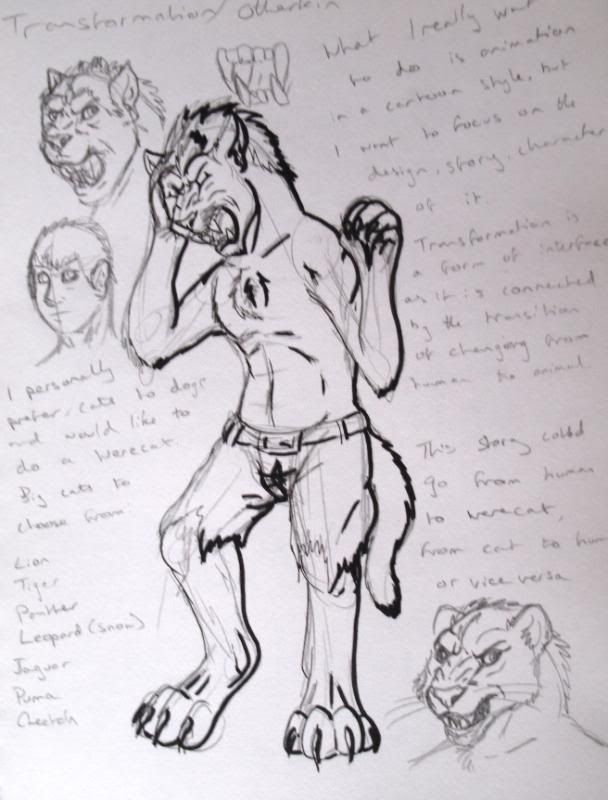 Transformation/Otherkin
What I really want
to do is animation
in a cartoon style, but
I want to focus on the
design, story, character
of it.
Transformation is
a form of interface
as it is connected
by the transition
of changing from
human to animal.
I personally
prefer cats to dogs
and would like to
do a werecat.
Big cats to
choose from:
Lion
Tiger
Panther
Leopard (snow)
Jaguar
Puma
Cheetah
This story could
go from human
to werecat,
from cat to hum
or vice versa